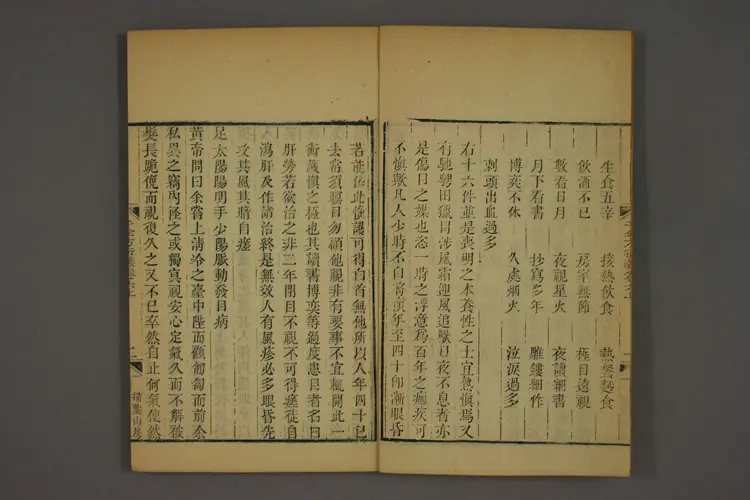 生食五辛　接熱飲食　熱餐麵食
飲酒不已　房室無節　極目遠視
數看日月　夜視星火　夜讀細書
月下看書　抄寫多年　雕鏤細作
博奕不休　久處烟火　泣淚過多
刺頭出血過多
右十六件並是喪明之本養性之士宜熟慎焉又
有馳騁田獵冒涉風霜迎風追獸日夜不息者亦
是傷目之媒也恣一時之浮意為百年之痼疾可
不慎歟凡人少時不自將慎年至四十即漸眼昏
若能依此慎護可得白首無他所以人年四十已
去常須瞑目勿顧他視非有要事不宜輒開此一
術護慎之極也其讀書博奕等過度患目者名曰
肝勞若欲治之非三年閉目不視不可得瘥徒自
瀉肝及作諸治終是無效人有風疹必多眼昏先
攻其風其暗自瘥
足太陽陽明手少陽脈動發目病
黃帝問曰余嘗上清冷之臺中陛而顧匍匐而前余
私異之竊內怪之或獨冥視安心定氣久而不解被
髮長跪俛而視復久之又不已卒然自止何氣使然
千金方衍義卷六上
二
掃葉山房